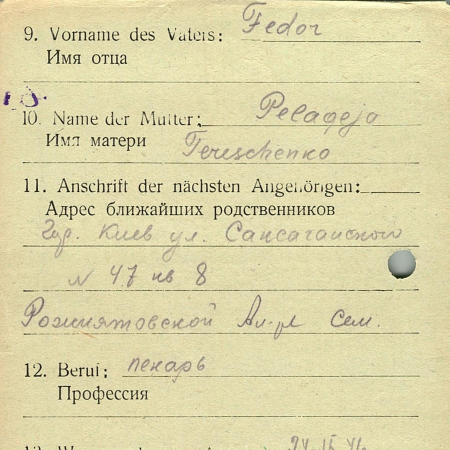 9. Vorname des Vaters: Fedor
Имя отца
10. Name der Mutter: Pelageja
Имя матери Tereschenko
11. Anschrift der nächsten Angehörigen:
Адрес ближайших родственников
Киев ул.
N 47 кв 8
Сем.
12. Beruf: пекарь
Профессия